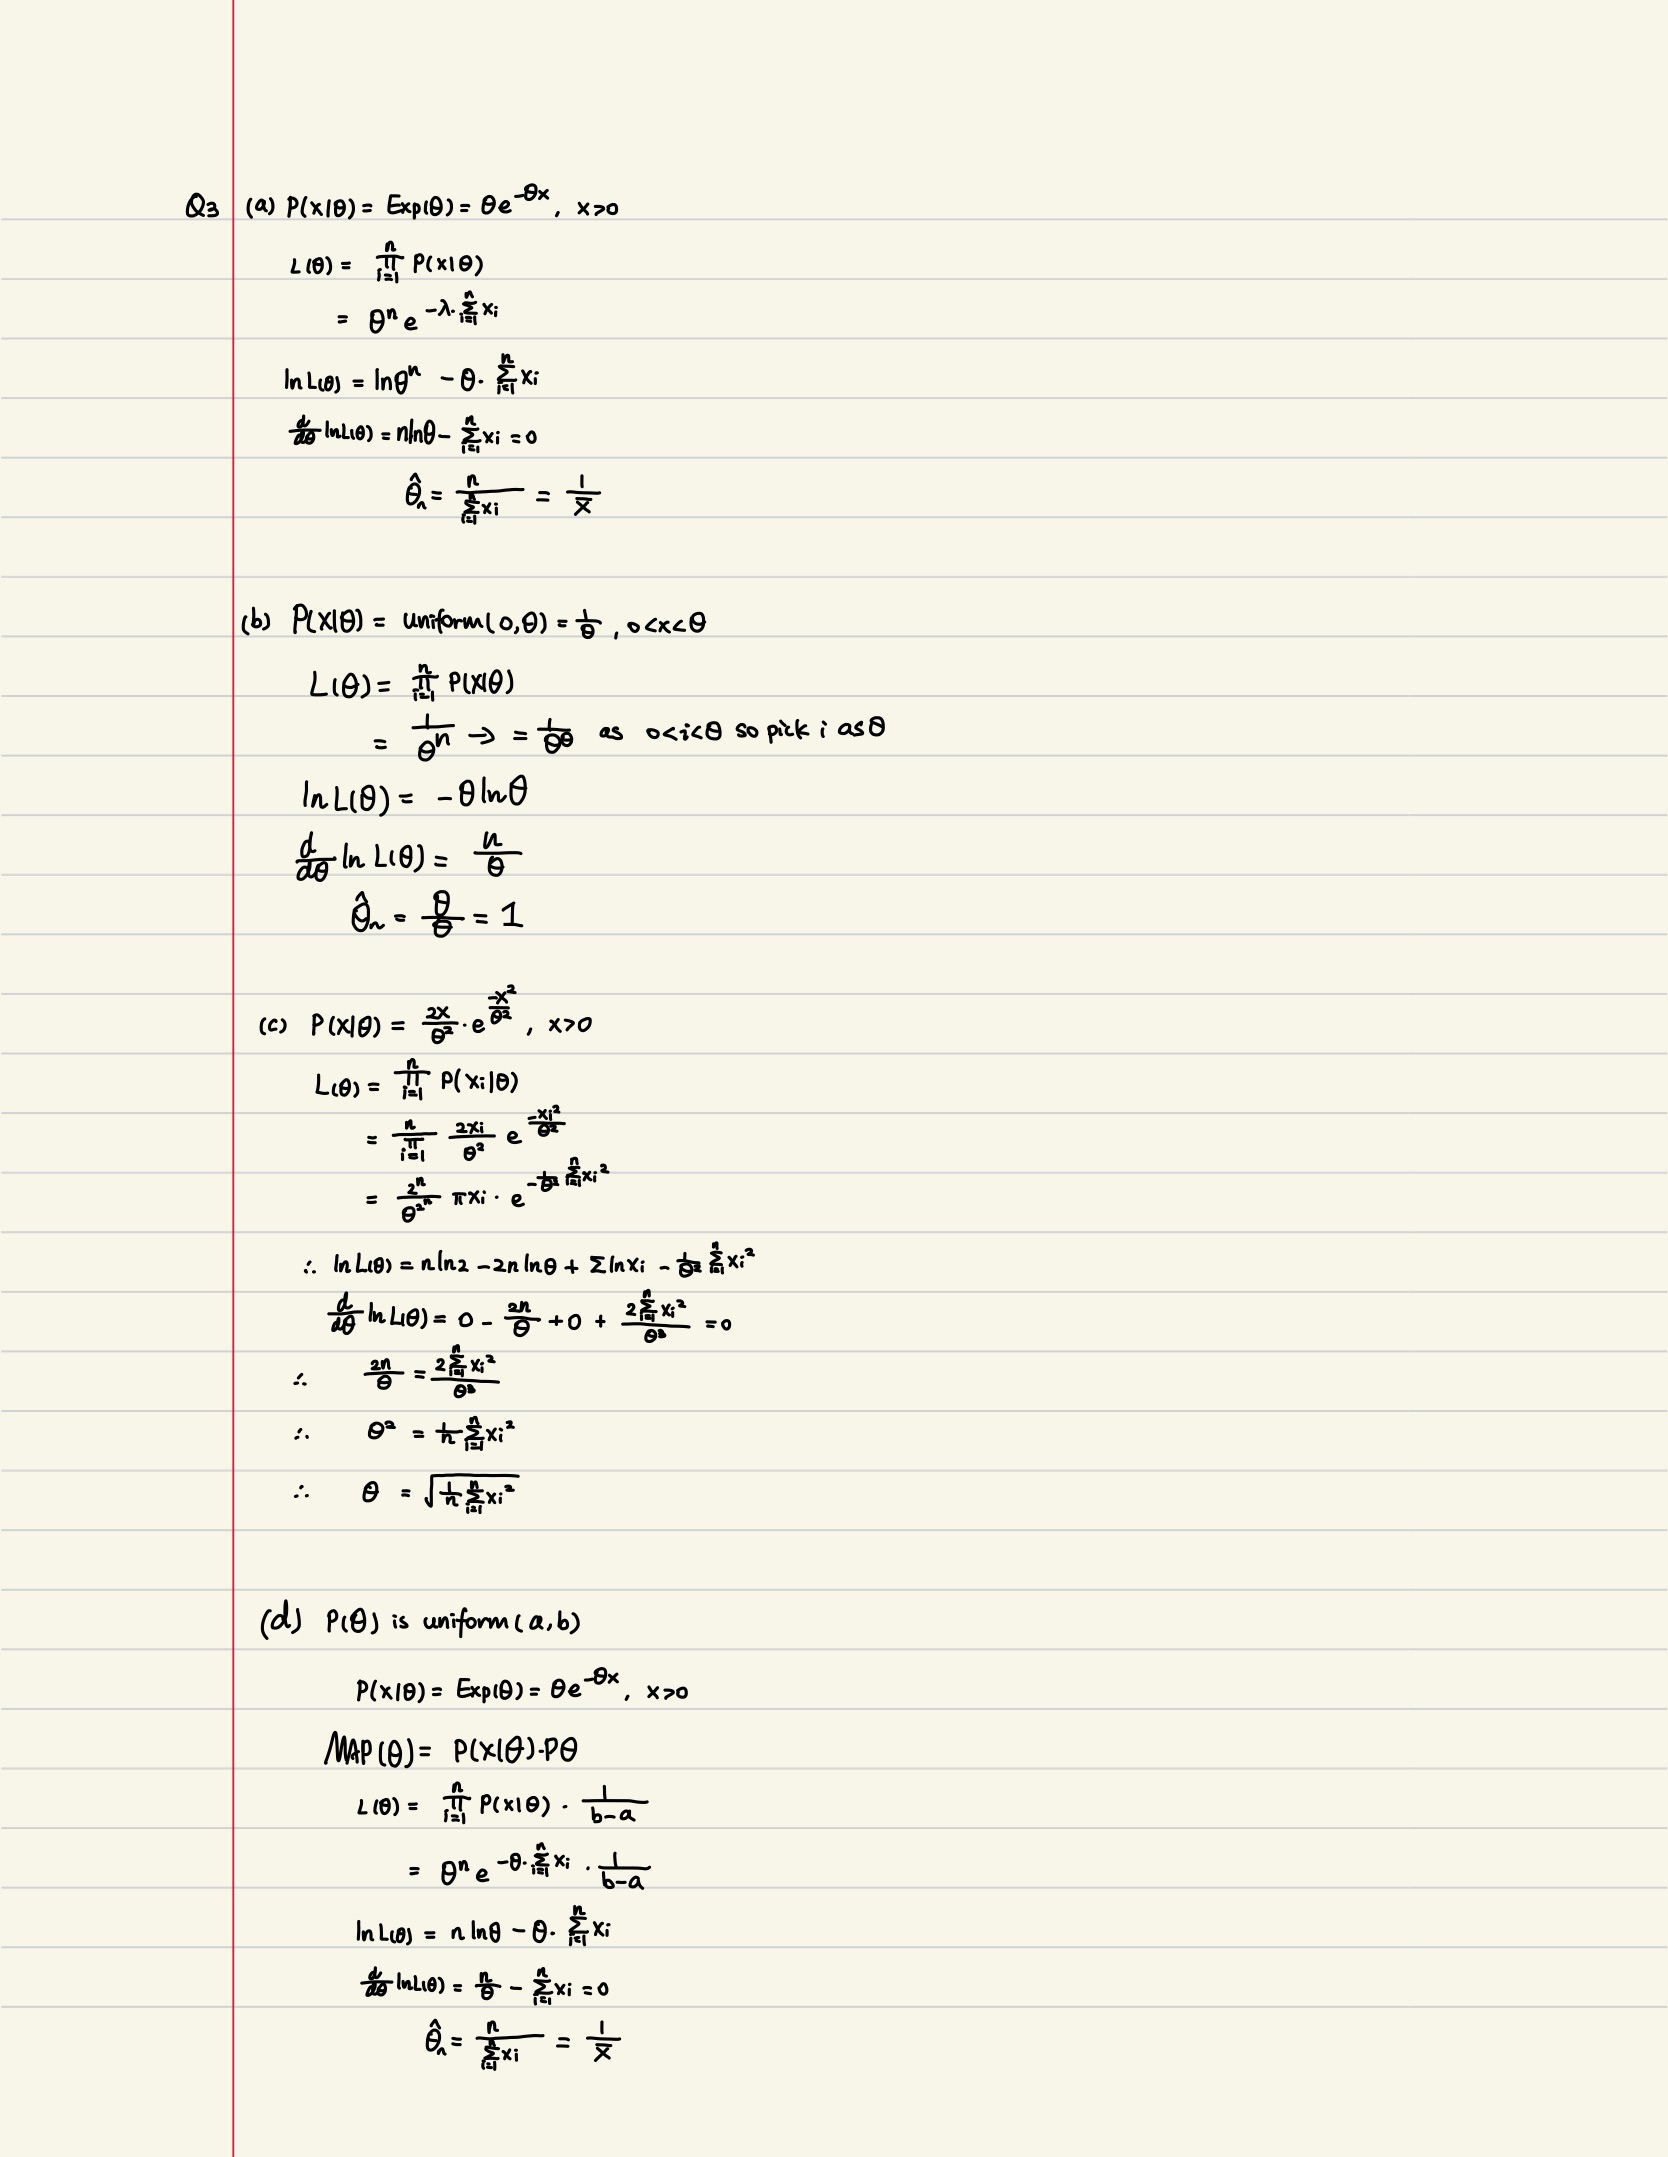 Q3 (a) P(x|θ) = Exp(θ) = θe^{-θx}, x>0
L(θ) = ∏_{i=1}^{n} P(x|θ)
= θ^n e^{-λ·∑_{i=1}^{n} xi}
ln L(θ) = lnθ^n - θ·∑_{i=1}^{n} xi
d/dθ lnL(θ) = nlnθ - ∑_{i=1}^{n} xi = 0
θ̂_n = n/∑_{i=1}^{n} xi = 1/x̄
(b) P(X|θ) = uniform(0,θ) = 1/θ, 0<x<θ
L(θ) = ∏_{i=1}^{n} P(X|θ)
= 1/θ^n → = 1/θ^θ as 0<i<θ so pick i as θ
ln L(θ) = -θ lnθ
d/dθ ln L(θ) = n/θ
θ̂_n = θ/θ = 1
(c) P(X|θ) = 2x/θ^2 · e^{-x^2/θ^2}, x>0
L(θ) = ∏_{i=1}^{n} P(xi|θ)
= ∏_{i=1}^{n} 2xi/θ^2 e^{-xi^2/θ^2}
= 2^n/θ^{2n} πxi · e^{-1/θ^2 ∑_{i=1}^{n} xi^2}
∴ ln L(θ) = n ln2 - 2n lnθ + ∑ lnxi - 1/θ^2 ∑_{i=1}^{n} xi^2
d/dθ ln L(θ) = 0 - 2n/θ + 0 + 2∑_{i=1}^{n} xi^2/θ^3 = 0
∴ 2n/θ = 2∑_{i=1}^{n} xi^2/θ^3
∴ θ^2 = 1/n ∑_{i=1}^{n} xi^2
∴ θ = √(1/n ∑_{i=1}^{n} xi^2)
(d) P(θ) is uniform(a,b)
P(x|θ) = Exp(θ) = θe^{-θx}, x>0
MAP(θ) = P(X|θ)·Pθ
L(θ) = ∏_{i=1}^{n} P(x|θ) · 1/(b-a)
= θ^n e^{-θ·∑_{i=1}^{n} xi} · 1/(b-a)
ln L(θ) = n lnθ - θ·∑_{i=1}^{n} xi
d/dθ lnL(θ) = n/θ - ∑_{i=1}^{n} xi = 0
θ̂_n = n/∑_{i=1}^{n} xi = 1/x̄